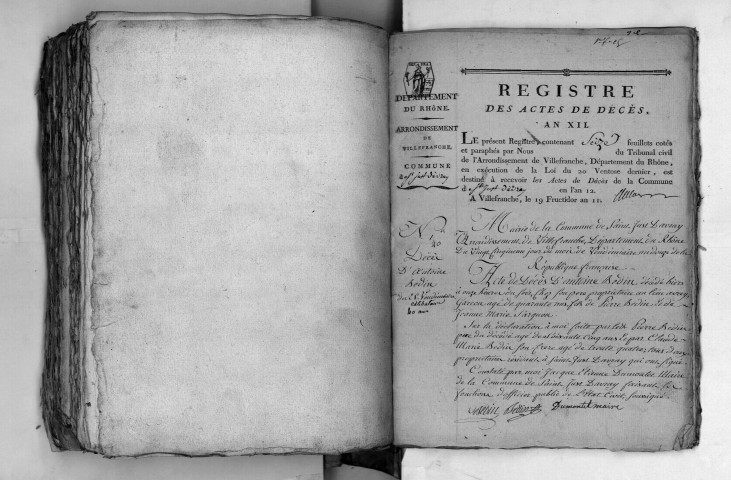 DÉPARTEMENT
DU RHÔNE.
ARRONDISSEMENT
DE
VILLEFRANCHE.
COMMUNE
de St Just d'Avray
REGISTRE
DES ACTES DE DÉCÈS.
AN XII.
LE présent Registre, contenant Seize feuillets cotés
et paraphés par Nous du Tribunal civil
de l'Arrondissement de Villefranche, Département du Rhône,
en exécution de la Loi du 20 Ventose dernier, est
destiné à recevoir les Actes de Décès de la Commune
de St Just d'Avray en l'an 12.
A Villefranche, le 19 Fructidor an 11.
Décès
D'Antoine
Bedin
40 ans
Mairie de la Commune de Saint Just Davray
Arrondissement de Villefranche, Département du Rhône
Du Vingt jour du mois de Vendémiaire an douze de la
République française
Acte de Décès D'antoine Bedin décédé hier
à onze heures du soir, chez son père propriétaire au lieu
Garçon, age de quarante ans fils de Pierre Bedin et de
Jeanne Marie
Sur la déclaration à moi faite par ledit Pierre Bedin
père du décédé age de soixante cinq ans et par Claude
Marie Bedin son frère age de trente quatre ans
propriétaires à Saint Just Davray qui ont signé
Constaté par moi Jacque Etienne Dumontet Maire
de la Commune de Saint Just Davray faisant les
fonctions d'officier public de l'état Civil, soussigné.
Bedin Dumontet maire